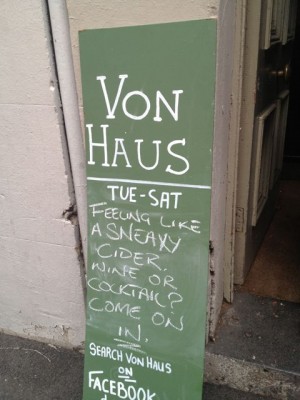 VON
HAUS
TUE-SAT
FEELING LIKE
A SNEAKY
CIDER.
WINE OR
COCKTAIL?
COME ON
IN.
SEARCH VON HAUS
ON
FACEBOOK